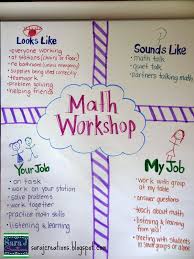 Looks Like
• everyone working
• at stations (chairs or floor)
• no bathroom (emergency)
• supplies being used correctly
• teamwork
• problem solving
• helping friends
Sounds Like
• math talk
• quiet talk
• partners talking math
Math
Workshop
Your Job
• on task
• work on your station
• solve problems
• work together
• practice math skills
• listening & learning
My Job
• work with group
at my table
• answer questions
• teach about math
• listening & learning
from you
• meeting with students
in small groups
Sara J
sarajcreations.blogspot.com